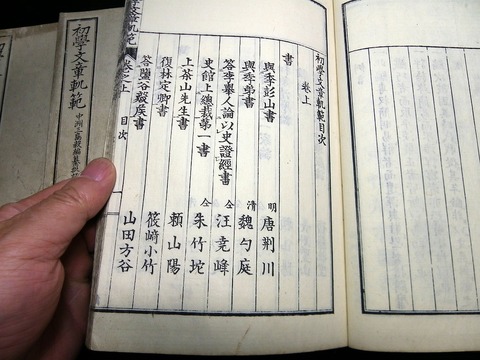 初學文章軌範目次
卷上
書
與季彭山書 明 唐荆川
與季弟書 清 魏勺庭
答李舉人論以史證經書 仝 汪堯峰
史館上總裁第一書 仝 朱竹垞
上茶山先生書 賴山陽
復林定卿書 篠﨑小竹
答鹽谷毅侯書 山田方谷
初學文章軌範 卷之上 目次
初學文章軌範